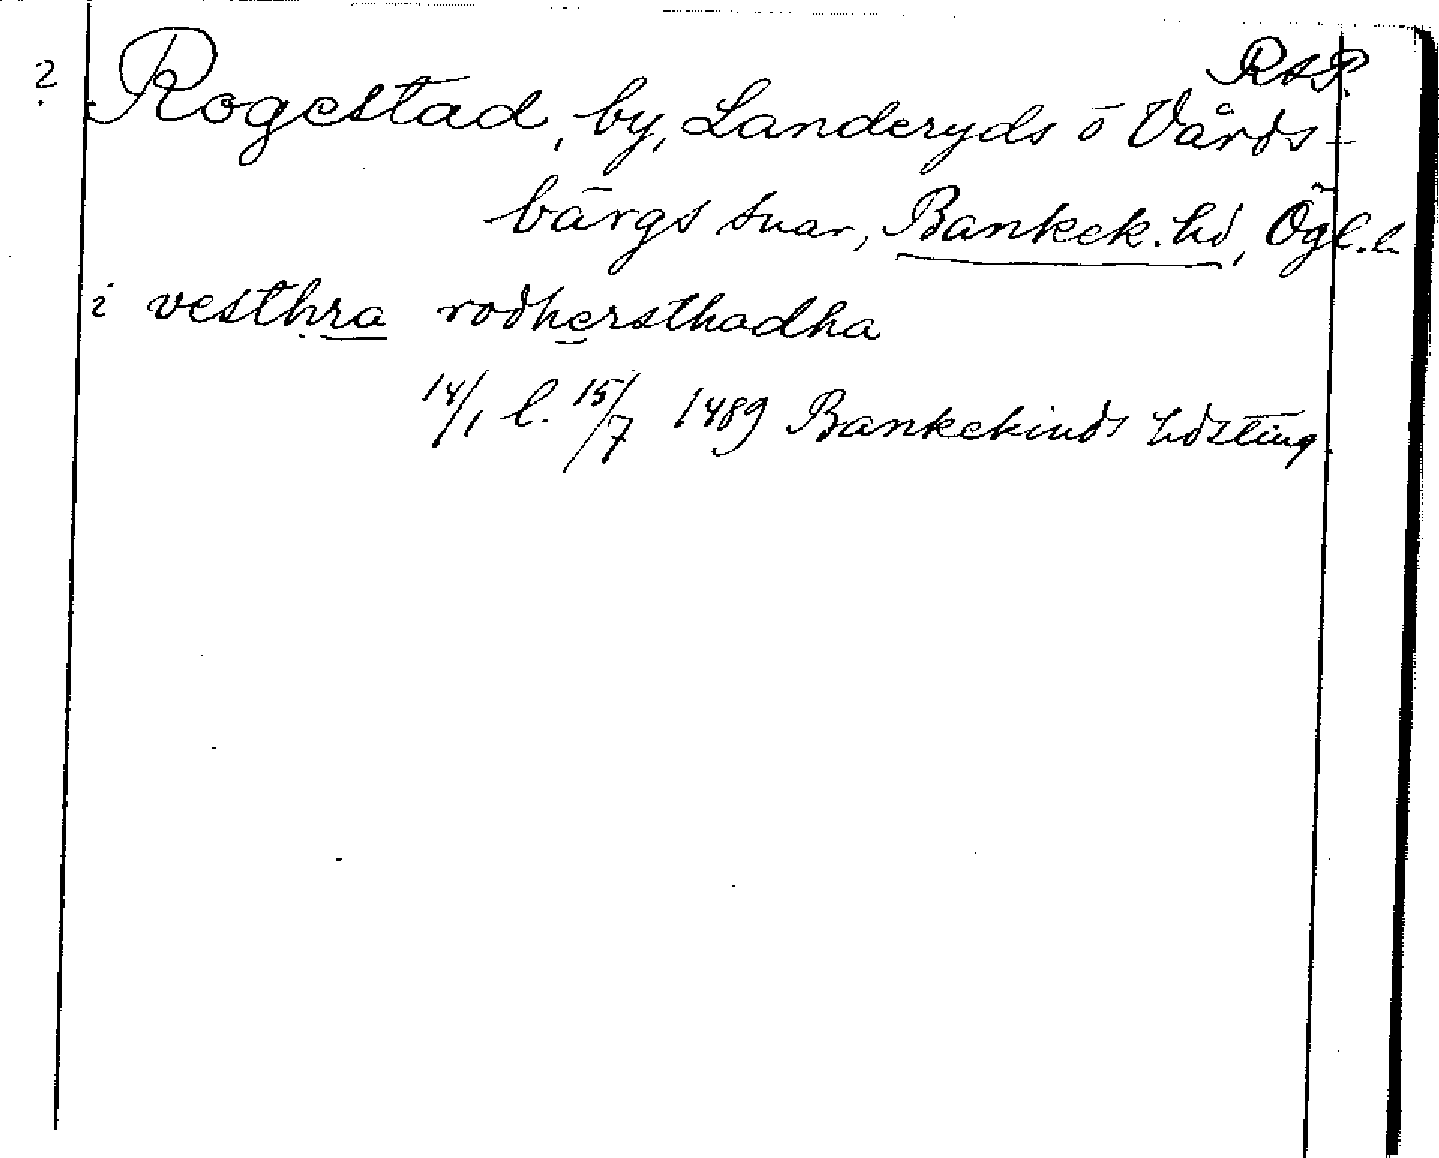 RAP.
? Rogestad, by, Landeryds o Vårds-
bärgs snar, Bankek. hd, Ögl. l.
i vesthra rodhersthadha
14/1 l. 15/7 1489 Bankekinds hdsting.